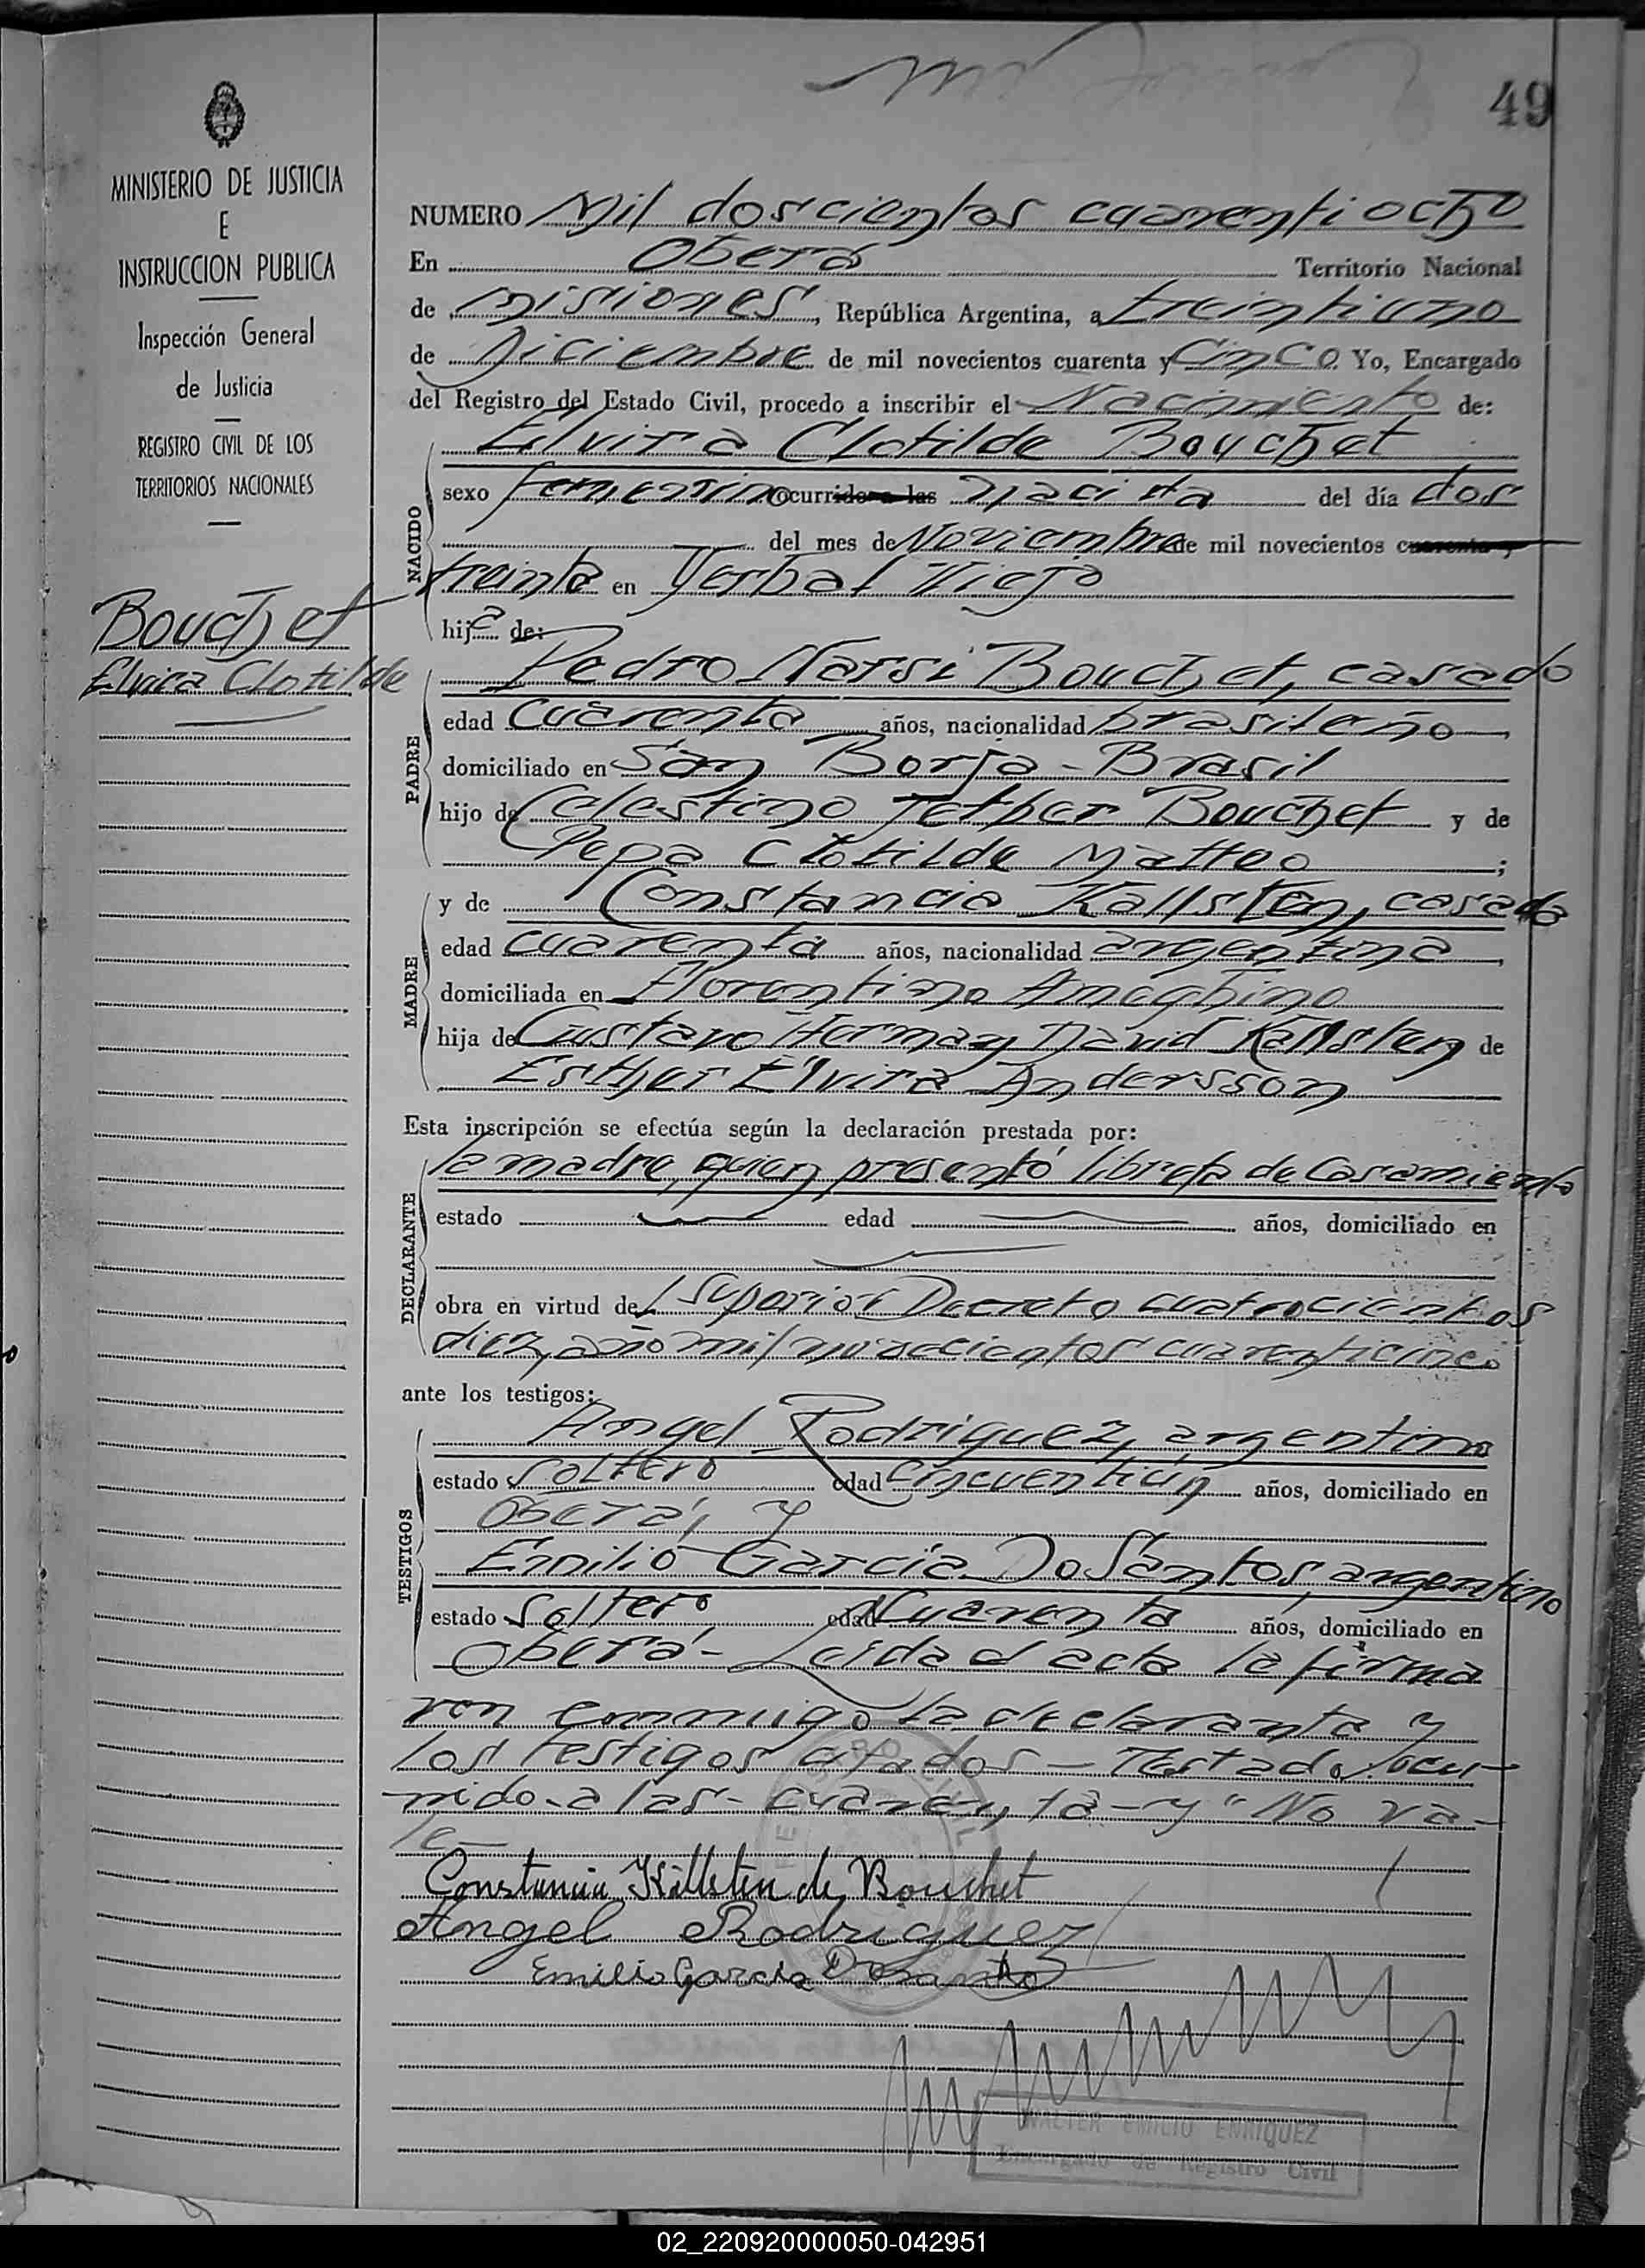 49
MINISTERIO DE JUSTICIA
E
INSTRUCCION PUBLICA
Inspección General
de Justicia
REGISTRO CIVIL DE LOS
TERRITORIOS NACIONALES
Bouchet
Elvira Clotilde
NUMERO Mil doscientos cuarentiocho
En Oberá Territorio Nacional
de Misiones, República Argentina, a treintiuno
de Diciembre de mil novecientos cuarenta y Cinco. Yo, Encargado
del Registro del Estado Civil, procedo a inscribir el Nacimiento de:
NACIDO
Elvira Clotilde Bouchet
sexo femenino ocurrido a las nacida del día dos
del mes de Noviembre de mil novecientos cuarenta y
treinta en Yerbal Viejo
hija de:
PADRE
Pedro Narsi Bouchet, casado
edad cuarenta años, nacionalidad brasileño
domiciliado en San Borja - Brasil
hijo de Celestino Bouchet y de
Pepa Clotilde Matteo ;
MADRE
y de Constancia Kallsten, casada
edad cuarenta años, nacionalidad argentina
domiciliada en Florentino Ameghino
hija de Gustavo Herman David Kallsten de
Esther Elvira Andersson
Esta inscripción se efectúa según la declaración prestada por:
DECLARANTE
la madre, quien presentó libreta de Casamiento
estado edad años, domiciliado en
obra en virtud del Superior Decreto cuatrocientos
diez, año mil novecientos cuarenticinco
ante los testigos:
TESTIGOS
Angel Rodriguez, argentino
estado Soltero edad cincuentiún años, domiciliado en
Oberá, y
Emilio Garcia Do Santos, argentino
estado Soltero edad Cuarenta años, domiciliado en
Oberá - Leida el acta la firma
ron conmigo la declaranta y
los testigos citados - Testado "ocu-
rrido - a las - cuarenta - y" No va-
le
Constancia Källsten de Bouchet
Angel Rodriguez
Emilio Garcia Dosanto
REGISTRO CIVIL
WALTER EMILIO ENRIQUEZ
Encargado de Registro Civil
02_220920000050-042951